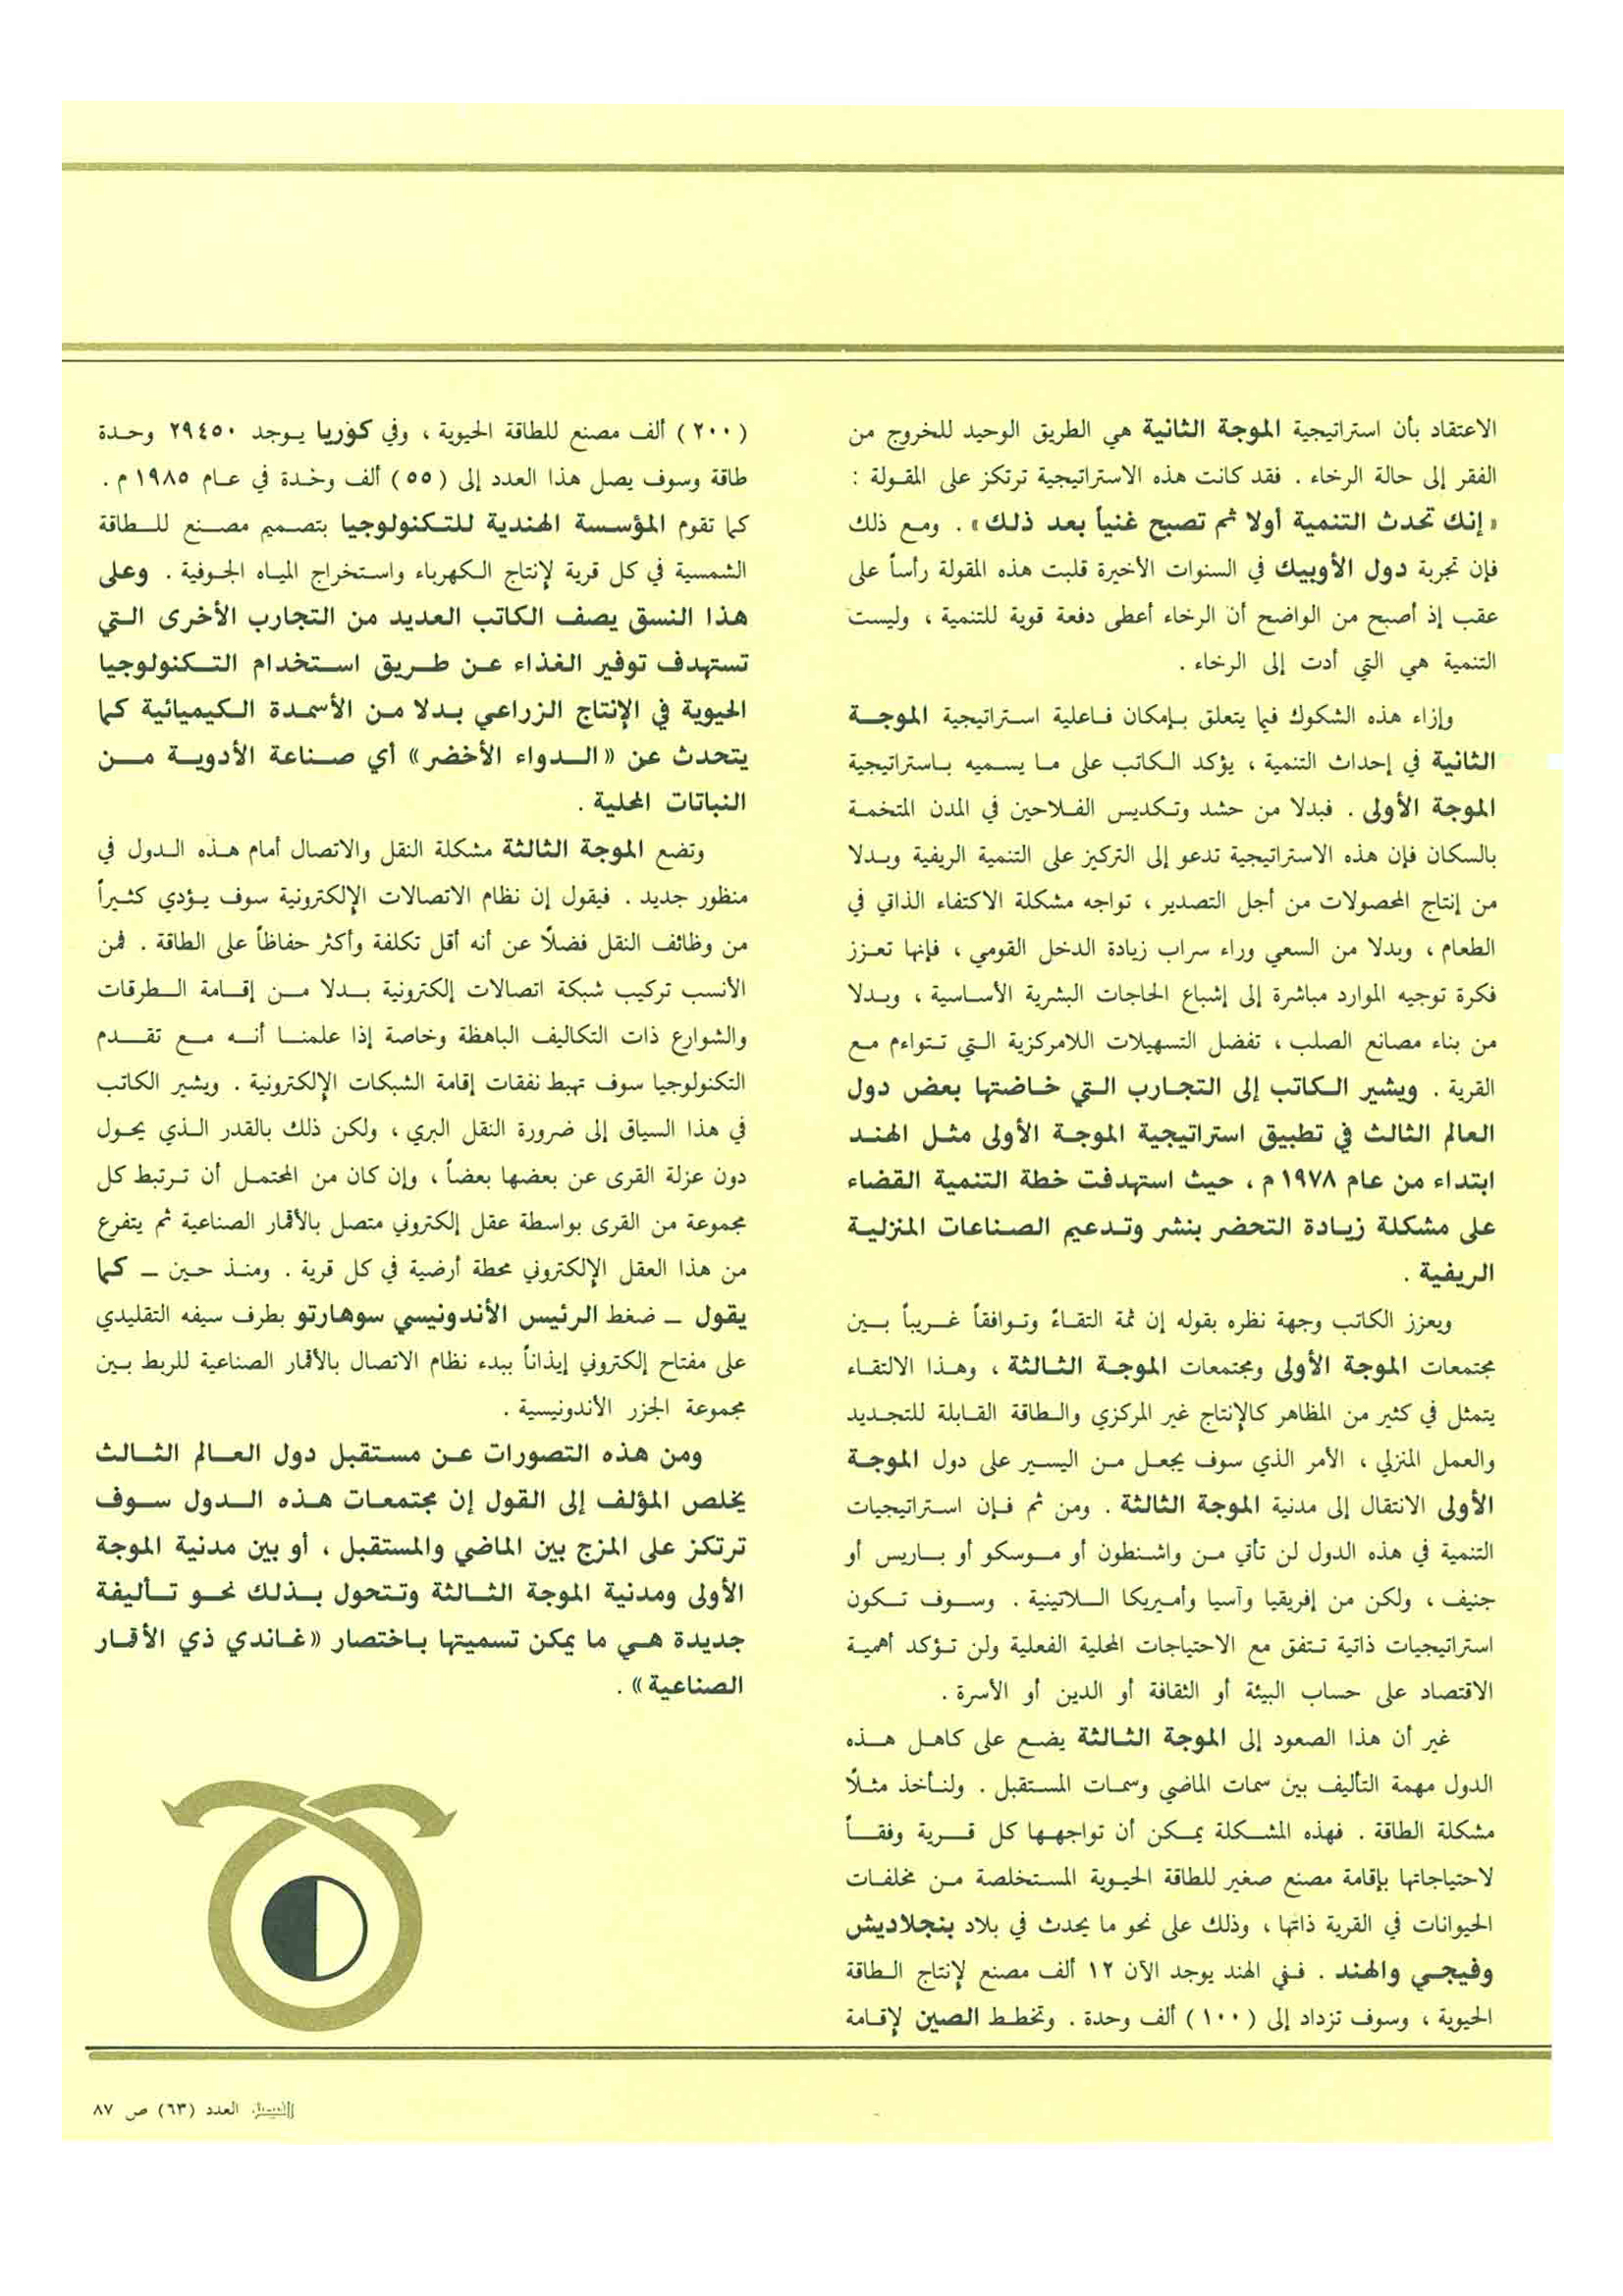 الاعتقاد بأن استراتيجية الموجة الثانية هي الطريق الوحيد للخروج من
الفقر إلى حالة الرخاء . فقد كانت هذه الاستراتيجية ترتكز على المقولة :
« إنك تحدث التنمية أولا ثم تصبح غنياً بعد ذلك » . ومع ذلك
فإن تجربة دول الأوبيك في السنوات الأخيرة قلبت هذه المقولة رأساً على
عقب إذ أصبح من الواضح أن الرخاء أعطى دفعة قوية للتنمية ، وليست
التنمية هي التي أدت إلى الرخاء .
وإزاء هذه الشكوك فيما يتعلق بإمكان فاعلية استراتيجية الموجة
الثانية في إحداث التنمية ، يؤكد الكاتب على ما يسميه باستراتيجية
الموجة الأولى . فبدلا من حشد وتكديس الفلاحين في المدن المتخمة
بالسكان فإن هذه الاستراتيجية تدعو إلى التركيز على التنمية الريفية وبدلا
من إنتاج المحصولات من أجل التصدير ، تواجه مشكلة الاكتفاء الذاتي في
الطعام ، وبدلا من السعي وراء سراب زيادة الدخل القومي ، فإنها تعزز
فكرة توجيه الموارد مباشرة إلى إشباع الحاجات البشرية الأساسية ، وبدلا
من بناء مصانع الصلب ، تفضل التسهيلات اللامركزية التي تتواءم مع
القرية . ويشير الكاتب إلى التجارب التي خاضتها بعض دول
العالم الثالث في تطبيق استراتيجية الموجة الأولى مثل الهند
ابتداء من عام ١٩٧٨ م ، حيث استهدفت خطة التنمية القضاء
على مشكلة زيادة التحضر بنشر وتدعيم الصناعات المنزلية
الريفية .
ويعزز الكاتب وجهة نظره بقوله إن ثمة التقاءً وتوافقاً غريباً بين
مجتمعات الموجة الأولى ومجتمعات الموجة الثالثة ، وهذا الالتقاء
يتمثل في كثير من المظاهر كالإنتاج غير المركزي والطاقة القابلة للتجديد
والعمل المنزلي ، الأمر الذي سوف يجعل من اليسير على دول الموجة
الأولى الانتقال إلى مدنية الموجة الثالثة . ومن ثم فإن استراتيجيات
التنمية في هذه الدول لن تأتي من واشنطون أو موسكو أو باريس أو
جنيف ، ولكن من إفريقيا وآسيا وأميريكا اللاتينية . وسوف تكون
استراتيجيات ذاتية تتفق مع الاحتياجات المحلية الفعلية ولن تؤكد أهمية
الاقتصاد على حساب البيئة أو الثقافة أو الدين أو الأسرة .
غير أن هذا الصعود إلى الموجة الثالثة يضع على كاهل هذه
الدول مهمة التأليف بين سمات الماضي وسمات المستقبل . ولنأخذ مثلاً
مشكلة الطاقة . فهذه المشكلة يمكن أن تواجهها كل قرية وفقاً
لاحتياجاتها بإقامة مصنع صغير للطاقة الحيوية المستخلصة من مخلفات
الحيوانات في القرية ذاتها ، وذلك على نحو ما يحدث في بلاد بنجلاديش
وفيجي والهند . ففي الهند يوجد الآن ١٢ ألف مصنع لإنتاج الطاقة
الحيوية ، وسوف تزداد إلى ( ١٠٠ ) ألف وحدة . وتخطط الصين لإقامة
( ٢٠٠ ) ألف مصنع للطاقة الحيوية ، وفي كوريا يوجد ٢٩٤٥٠ وحدة
طاقة وسوف يصل هذا العدد إلى ( ٥٥ ) ألف وحدة في عام ١٩٨٥ م .
كما تقوم المؤسسة الهندية للتكنولوجيا بتصميم مصنع للطاقة
الشمسية في كل قرية لإنتاج الكهرباء واستخراج المياه الجوفية . وعلى
هذا النسق يصف الكاتب العديد من التجارب الأخرى التي
تستهدف توفير الغذاء عن طريق استخدام التكنولوجيا
الحيوية في الإنتاج الزراعي بدلا من الأسمدة الكيميائية كما
يتحدث عن « الدواء الأخضر » أي صناعة الأدوية من
النباتات المحلية .
وتضع الموجة الثالثة مشكلة النقل والاتصال أمام هذه الدول في
منظور جديد . فيقول إن نظام الاتصالات الإلكترونية سوف يؤدي كثيراً
من وظائف النقل فضلاً عن أنه أقل تكلفة وأكثر حفاظاً على الطاقة . فمن
الأنسب تركيب شبكة اتصالات إلكترونية بدلا من إقامة الطرقات
والشوارع ذات التكاليف الباهظة وخاصة إذا علمنا أنه مع تقدم
التكنولوجيا سوف تهبط نفقات إقامة الشبكات الإلكترونية . ويشير الكاتب
في هذا السياق إلى ضرورة النقل البري ، ولكن ذلك بالقدر الذي يحول
دون عزلة القرى عن بعضها بعضاً ، وإن كان من المحتمل أن ترتبط كل
مجموعة من القرى بواسطة عقل إلكتروني متصل بالأقمار الصناعية ثم يتفرع
من هذا العقل الإلكتروني محطة أرضية في كل قرية . ومنذ حين ــ كما
يقول ــ ضغط الرئيس الأندونيسي سوهارتو بطرف سيفه التقليدي
على مفتاح إلكتروني إيذاناً ببدء نظام الاتصال بالأقمار الصناعية للربط بين
مجموعة الجزر الأندونيسية .
ومن هذه التصورات عن مستقبل دول العالم الثالث
يخلص المؤلف إلى القول إن مجتمعات هذه الدول سوف
ترتكز على المزج بين الماضي والمستقبل ، أو بين مدنية الموجة
الأولى ومدنية الموجة الثالثة وتتحول بذلك نحو تأليفة
جديدة هي ما يمكن تسميتها باختصار « غاندي ذي الأقمار
الصناعية » .
الفيصل العدد (٦٣) ص ٨٧